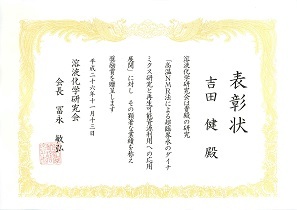 表彰状
吉田 健 殿
溶液化学研究会は貴殿の研究
「高温NMR法による超臨界水のダイナ
ミクス研究と再生可能資源利用への応用
展開」に対し その顕著な業績を称え
奨励賞を贈呈します
平成二十六年十一月十三日
溶液化学研究会
会長 冨永 敏弘